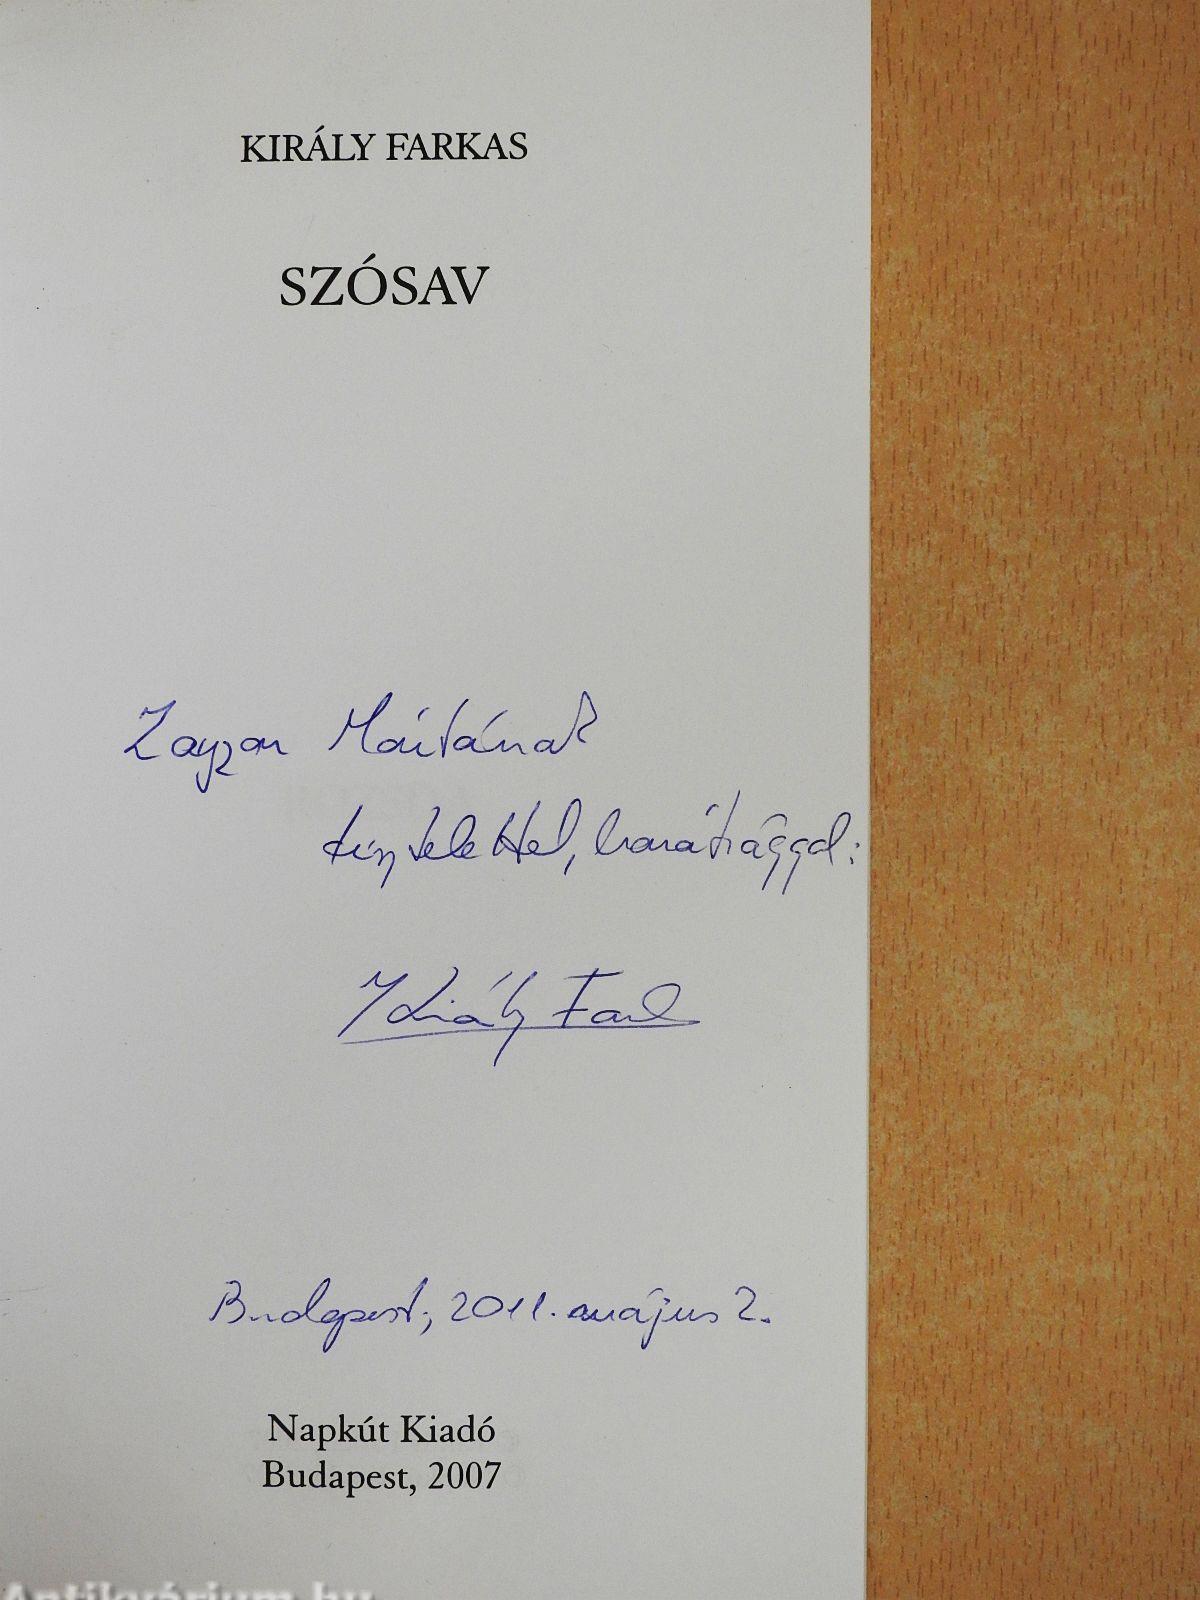 KIRÁLY FARKAS
SZÓSAV
Zayzon Máriának
tisztelettel, barátsággal:
Király Farkas
Budapest, 2011. május 2.
Napkút Kiadó
Budapest, 2007
Antikvárium.hu